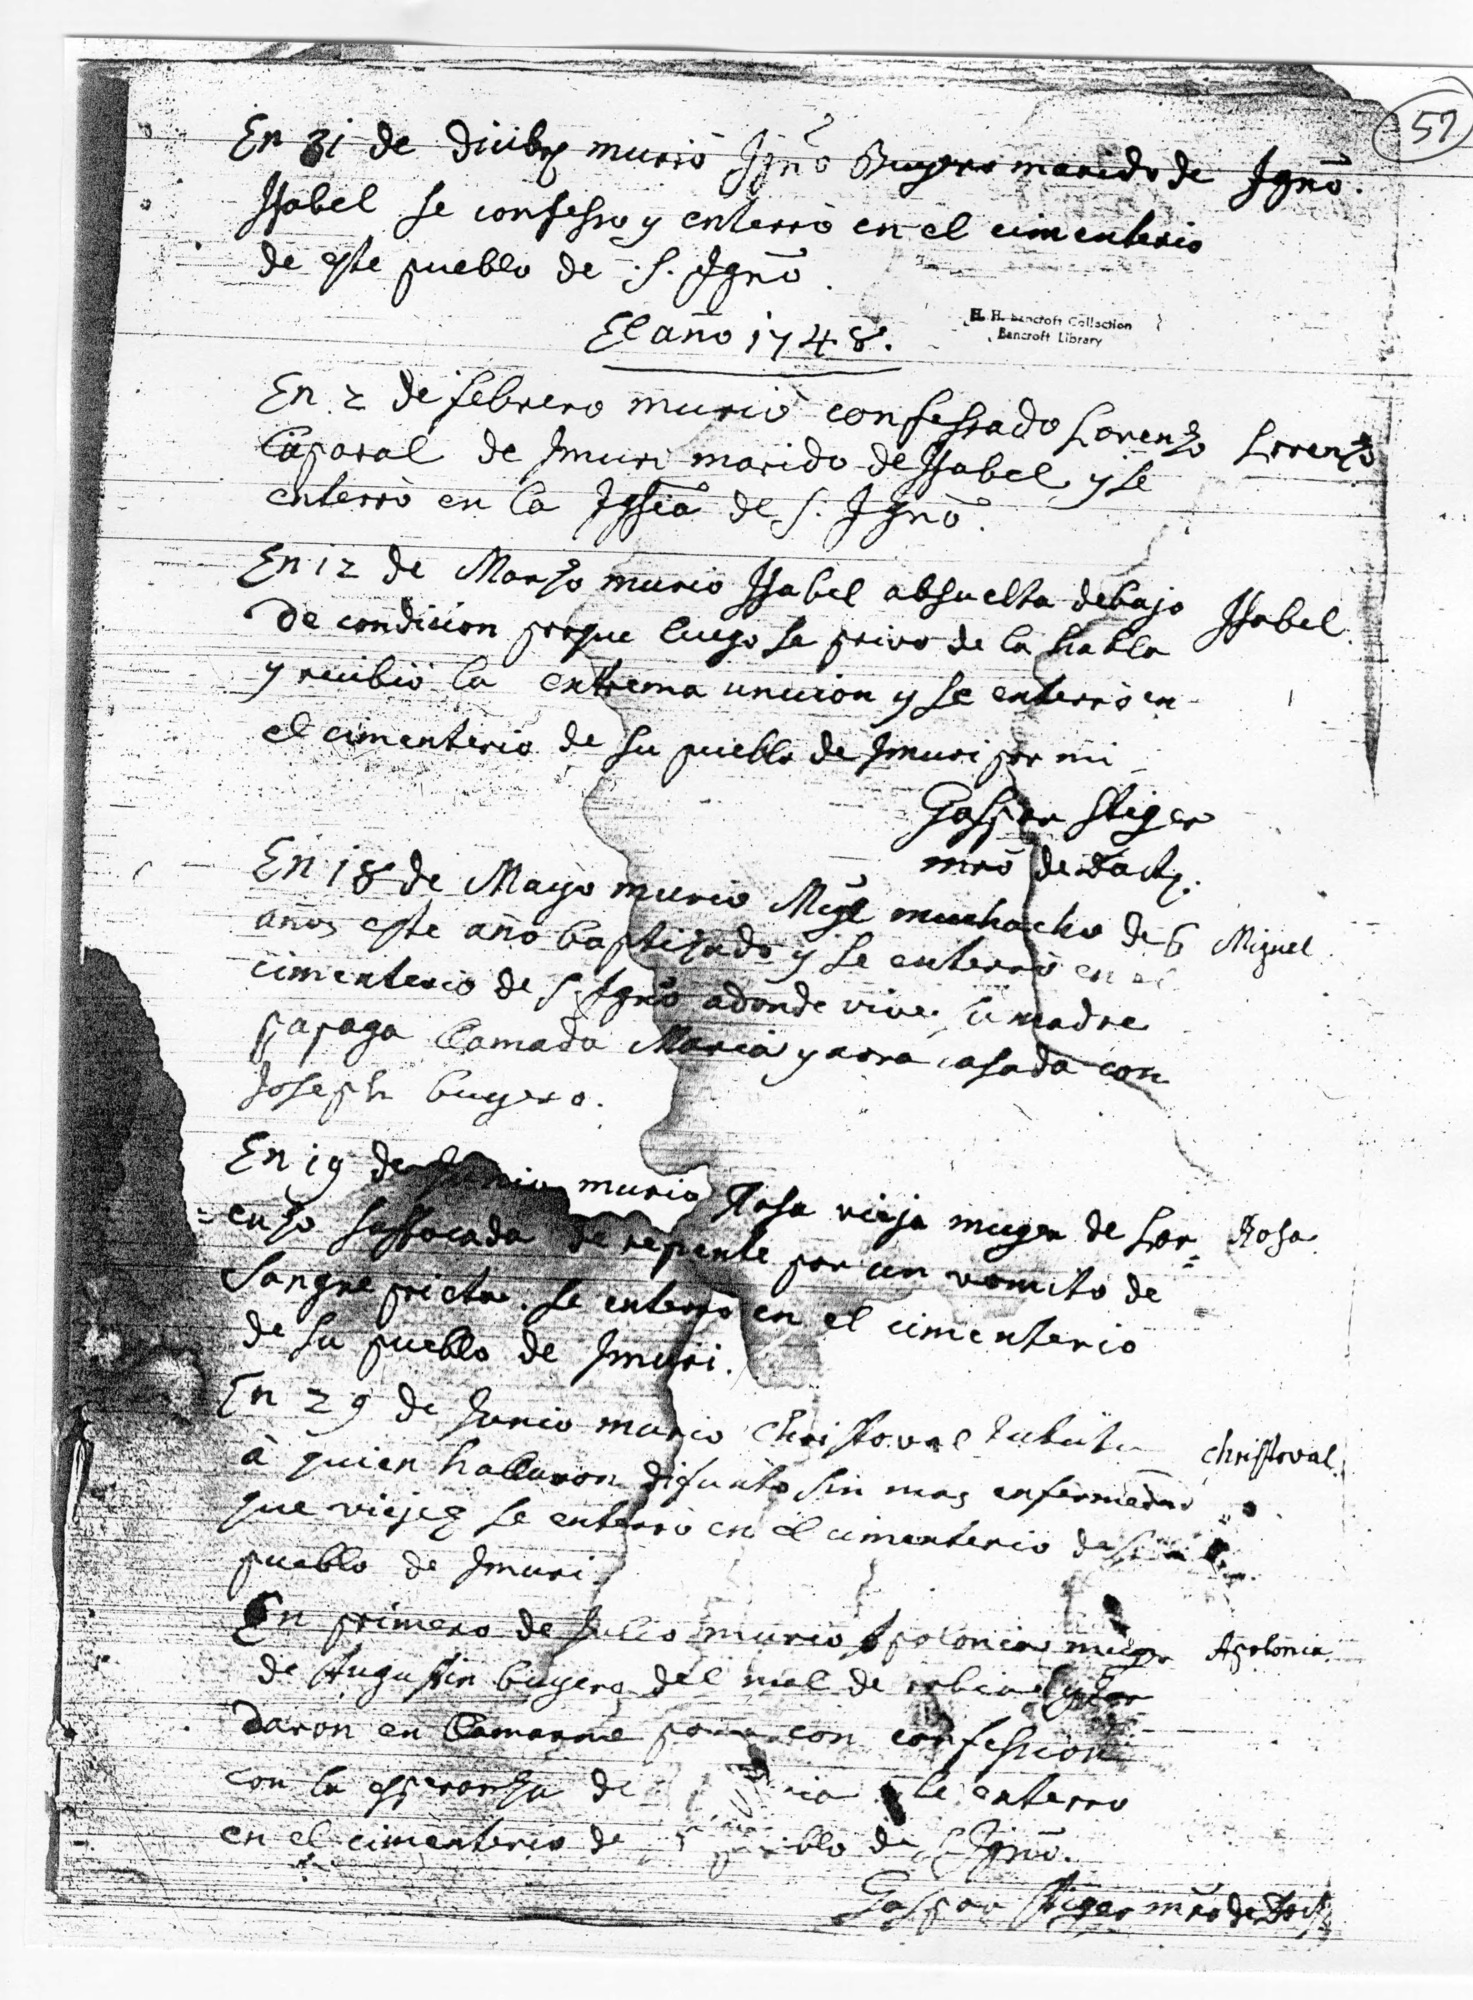 57
En 31 de dicibre murio Ignõ Buyero marido de Ignõ.
Issabel se confesso y enterrò en el cimenterio
de este pueblo de S. Ignõ.
H. H. Bancroft Collection
Bancroft Library
El año 1748.
En 2 de febrero muriò confessado Lorenzo Lorenzo
Caporal de Imuri marido de Issabel y se
enterrò en la Iglesia de S. Ignõ.
En 12 de Marzo murio Issabel absuelta debajo Issabel.
De condicion porque luego se privo de la habla
y recibiò la extrema uncion y se enterrò en
el cimenterio de su pueblo de Imuri por mi
Gaspar Stiger
mro de Doct.
En 18 de Mayo murio Migl muchacho de 6 Miguel
años este año baptizado y se enterrò en el
cimenterio de S. Ignõ adonde vive su madre
papaga llamada Maria y aora casada con
Joseph buyero.
En 19 de Junio murio Rosa vieja muger de Lor= Rosa
=enzo soffocada de repente por un vomito de
Sangre prieta. Se enterrò en el cimenterio
de su pueblo de Imuri.
En 29 de Junio murio Christoval Christoval
à quien hallaron difunto sin mas enfermedad
que viejez se enterrò en el cimenterio de su
pueblo de Imuri
En primero de Julio murio Apolonia muger Apolonia
de Augustin buyero del mal de rabia
daron en llamarme con confession
con la esperanza de se enterro
en el cimenterio de pueblo de S. Ignõ.
Gaspar Stiger mro de Doct.